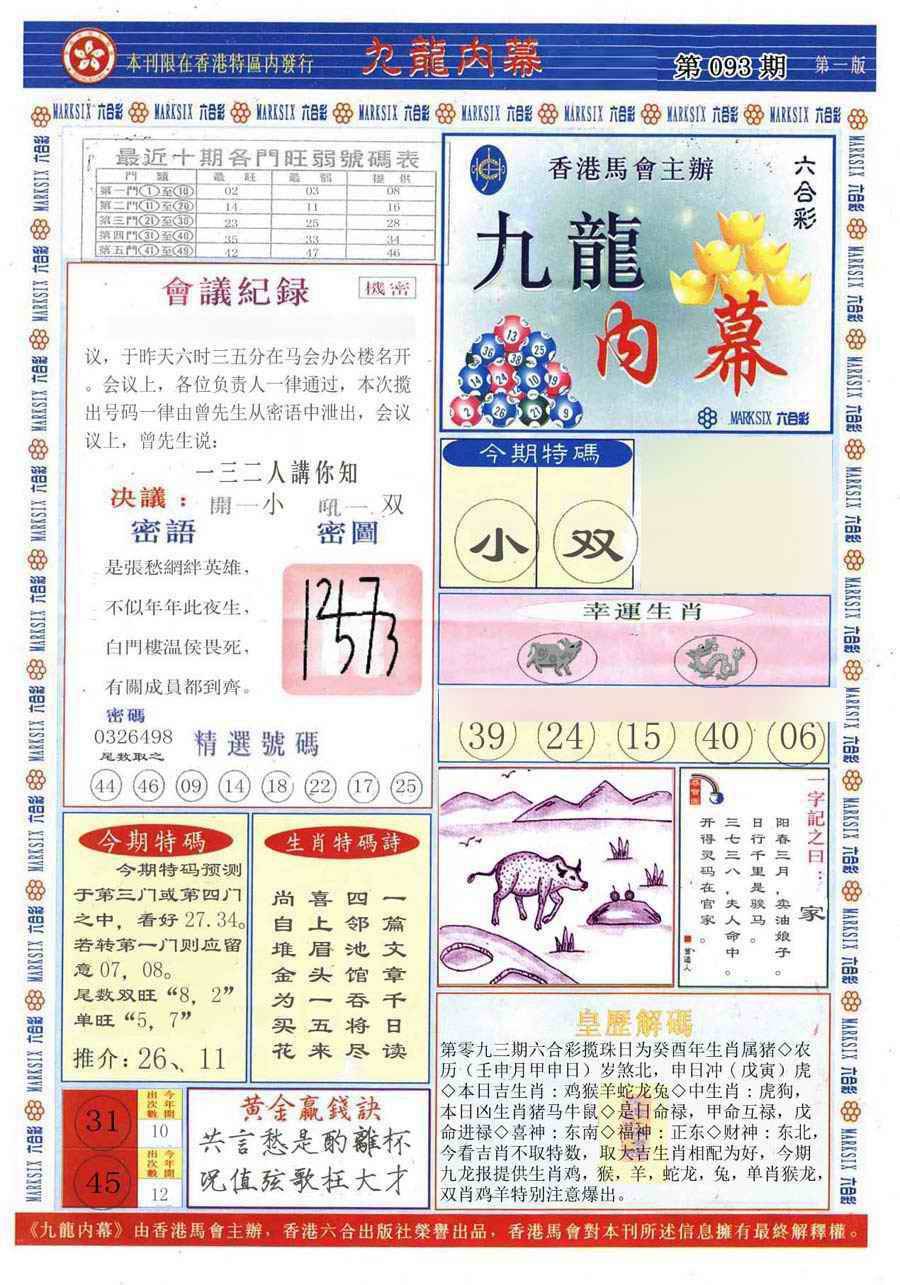 本刊限在香港特區内發行
九龍内幕
第 093 期
第一版
MARKSIX 六合彩 MARKSIX 六合彩 MARKSIX 六合彩 MARKSIX 六合彩 MARKSIX 六合彩 MARKSIX 六合彩 MARKSIX 六合彩 MARKSIX 六合彩
最近十期各門旺弱號碼表
門類 最旺 最弱 提供
第一門①至⑩ 02 03 08
第二門⑪至⑳ 14 11 16
第三門㉑至㉚ 23 25 28
第四門㉛至㊵ 35 33 34
第五門㊶至㊾ 42 47 46
會議紀録
機密
议，于昨天六时三五分在马会办公楼名开
。会议上，各位负责人一律通过，本次揽
出号码一律由曾先生从密语中泄出，会议
议上，曾先生说：
一三二人講你知
决議： 開一小 吼一 双
密語
是張愁網絆英雄，
不似年年此夜生，
白門樓温侯畏死，
有關成員都到齊。
密圖
密碼
0326498
尾数取之
精選號碼
44 46 09 14 18 22 17 25
香港馬會主辦
六合彩
九龍
内幕
13
36 38 25
14 24 10 19
2 26 21 9
MARKSIX 六合彩
今期特碼
小 双
幸運生肖
39 24 15 40 06
一字記之曰：
家
阳春三月，卖油娘子。
日行千里是骏马。
三七三八，夫人命中。
开得灵码在官家。
曾道人
今期特碼
今期特码预测
于第三门或第四门
之中，看好 27.34。
若转第一门则应留
意 07，08。
尾数双旺“8，2”
单旺“5，7”
推介：26、11
生肖特碼詩
一篇文章千日读
四邻池馆吞将尽
喜上眉头一五来
尚自堆金为买花
31
今年開出次數
10
45
今年開出次數
12
黄金贏錢訣
共言愁是酌離杯
况值弦歌枉大才
皇歷解碼
第零九三期六合彩揽珠日为癸酉年生肖属猪◇农
历（壬申月甲申日）岁煞北，申日冲（戊寅）虎
◇本日吉生肖：鸡猴羊蛇龙兔◇中生肖：虎狗，
本日凶生肖猪马牛鼠◇是日命禄，甲命互禄，戊
命进禄◇喜神：东南◇福神：正东◇财神：东北，
今看吉肖不取特数，取大吉生肖相配为好，今期
九龙报提供生肖鸡，猴，羊，蛇龙，兔，单肖猴龙，
双肖鸡羊特别注意爆出。
《九龍内幕》由香港馬會主辦，香港六合出版社榮譽出品，香港馬會對本刊所述信息擁有最終解釋權。